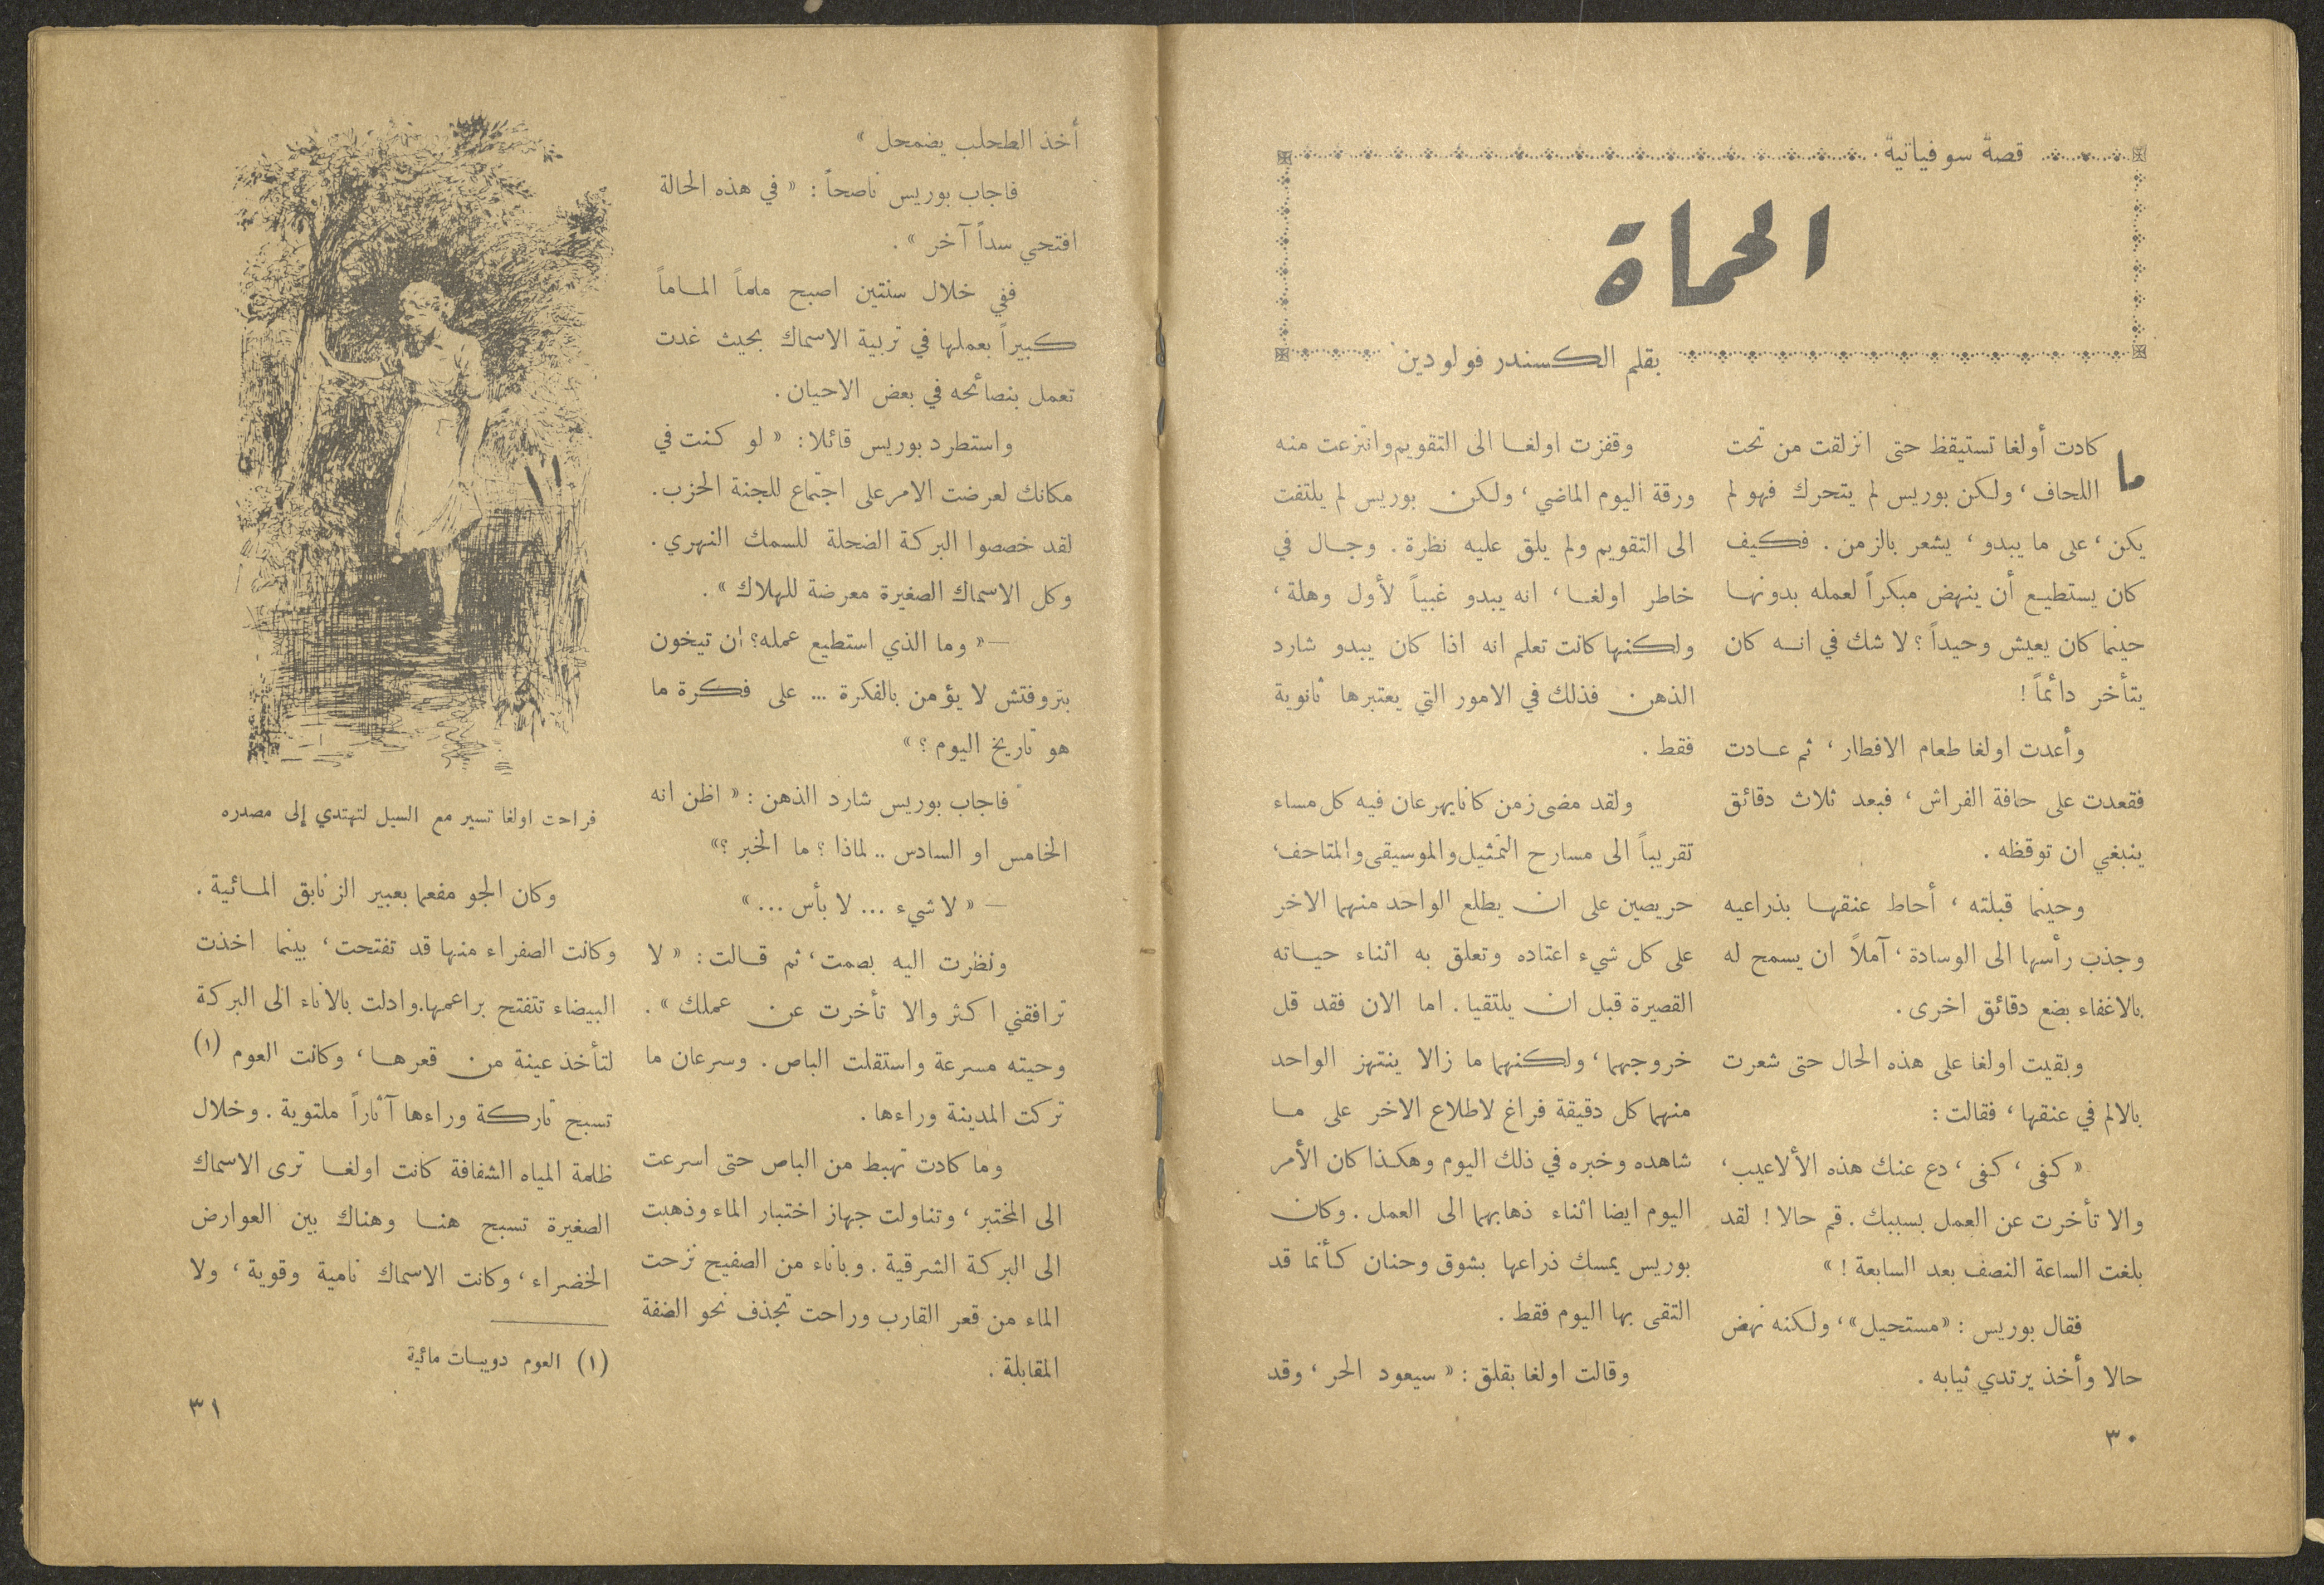 قصة سوفياتية
الحماة
بقلم الكسندر فولودين
ما كادت أولغا تستيقظ حتى انزلقت من تحت
اللحاف، ولكن بوريس لم يتحرك فهو لم
يكن، على ما يبدو، يشعر بالزمن. فكيف
كان يستطيع أن ينهض مبكراً لعمله بدونها
حينما كان يعيش وحيداً؟ لا شك في انه كان
يتأخر دائماً!
وأعدت اولغا طعام الافطار، ثم عادت
فقعدت على حافة الفراش، فبعد ثلاث دقائق
ينبغي ان توقظه.
وحينما قبلته، أحاط عنقها بذراعيه
وجذب رأسها الى الوسادة، آملاً ان يسمح له
بالاغفاء بضع دقائق اخرى.
وبقيت اولغا على هذه الحال حتى شعرت
بالالم في عنقها، فقالت:
« كفى، كفى، دع عنك هذه الألاعيب،
والا تأخرت عن العمل بسببك. قم حالا! لقد
بلغت الساعة النصف بعد السابعة! »
فقال بوريس: «مستحيل»، ولكنه نهض
حالا وأخذ يرتدي ثيابه.
وقفزت اولغا الى التقويم وانتزعت منه
ورقة اليوم الماضي، ولكن بوريس لم يلتفت
الى التقويم ولم يلق عليه نظرة. وجال في
خاطر اولغا، انه يبدو غبياً لأول وهلة،
ولكنها كانت تعلم انه اذا كان يبدو شارد
الذهن فذلك في الامور التي يعتبرها ثانوية
فقط.
ولقد مضى زمن كانا يهرعان فيه كل مساء
تقريباً الى مسارح التمثيل والموسيقى والمتاحف،
حريصين على ان يطلع الواحد منهما الاخر
على كل شيء اعتاده وتعلق به اثناء حياته
القصيرة قبل ان يلتقيا. اما الان فقد قل
خروجهما، ولكنهما ما زالا ينتهز الواحد
منهما كل دقيقة فراغ لاطلاع الاخر على ما
شاهده وخبره في ذلك اليوم وهكذا كان الأمر
اليوم ايضا اثناء ذهابهما الى العمل. وكان
بوريس يمسك ذراعها بشوق وحنان كأنما قد
التقى بها اليوم فقط.
وقالت اولغا بقلق: « سيعود الحر، وقد
٣٠
أخذ الطحلب يضمحل »
فاجاب بوريس ناصحاً: « في هذه الحالة
افتحي سداً آخر ».
ففي خلال سنتين اصبح ملماً الماماً
كبيراً بعملها في تربية الاسماك بحيث غدت
تعمل بنصائحه في بعض الاحيان.
واستطرد بوريس قائلا: « لو كنت في
مكانك لعرضت الامر على اجتماع للجنة الحزب.
لقد خصصوا البركة الضحلة للسمك النهري.
وكل الاسماك الصغيرة معرضة للهلاك ».
— « وما الذي استطيع عمله؟ ان تيخون
بتروفتش لا يؤمن بالفكرة ... على فكرة ما
هو تاريخ اليوم؟ »
فاجاب بوريس شارد الذهن: « اظن انه
الخامس او السادس .. لماذا؟ ما الخبر؟»
— « لا شيء ... لا بأس ... »
ونظرت اليه بصمت، ثم قالت: « لا
ترافقني اكثر والا تأخرت عن عملك ».
وحيته مسرعة واستقلت الباص. وسرعان ما
تركت المدينة وراءها.
وما كادت تهبط من الباص حتى اسرعت
الى المختبر، وتناولت جهاز اختبار الماء وذهبت
الى البركة الشرقية. وباناء من الصفيح نزحت
الماء من قعر القارب وراحت تجذف نحو الضفة
المقابلة.
فراحت اولغا تسير مع السيل لتهتدي إلى مصدره
وكان الجو مفعما بعبير الزنابق المائية.
وكانت الصفراء منها قد تفتحت، بينما اخذت
البيضاء تتفتح براعمها.وادلت بالاناء الى البركة
لتأخذ عينة من قعرها، وكانت العوم (١)
تسبح تاركة وراءها آثاراً ملتوية. وخلال
ظلمة المياه الشفافة كانت اولغا ترى الاسماك
الصغيرة تسبح هنا وهناك بين العوارض
الخضراء، وكانت الاسماك نامية وقوية، ولا
(١) العوم دويبات مائية
٣١